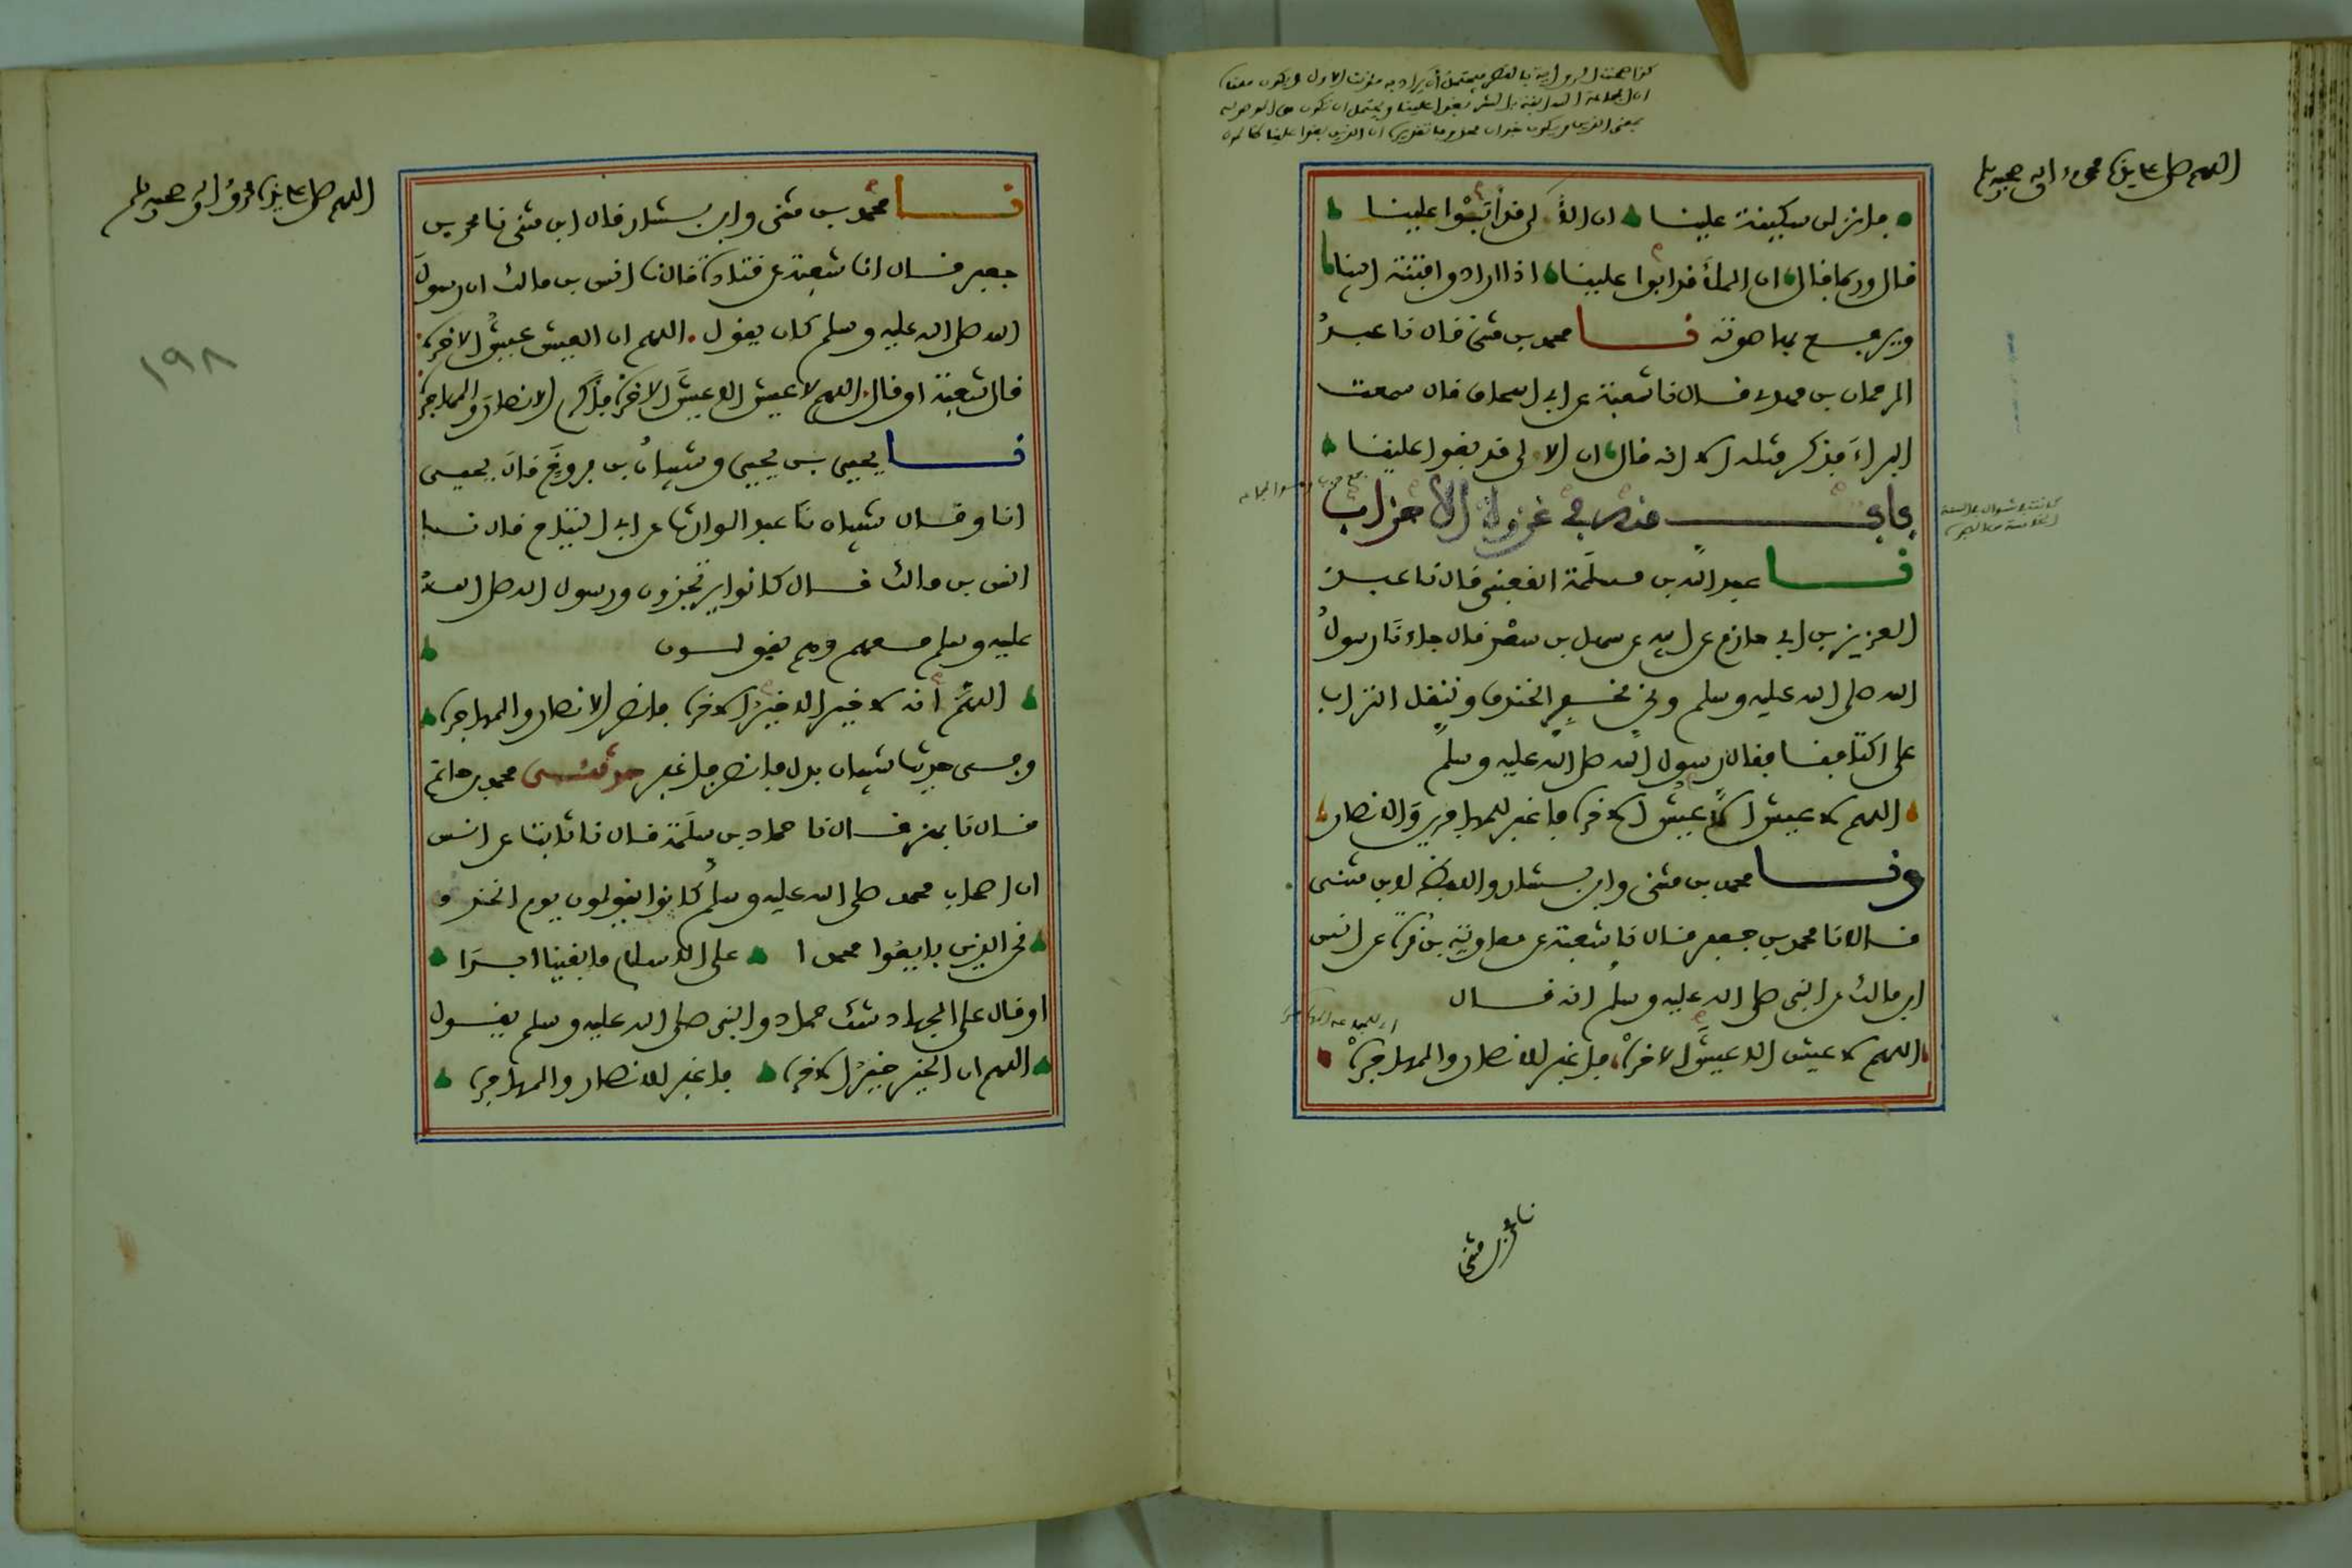 اللهم صل على سيدنا محمد وآله وصحبه وسلم
فانزلن سكينة علينا ان الالى قد ابوا علينا
قال وربما قال ان الملأ قد ابوا علينا اذا ارادوا فتنة ابينا
ويرفع بها صوته نا محمد بن مثنى قال نا عبد
الرحمان بن مهدي قال نا شعبة عن ابي اسحاق قال سمعت
البراء فذكر مثله الا انه قال ان الالى قد بغوا علينا
باب منه في غزوة الاحزاب
نا عبد الله بن مسلمة القعنبي قال نا عبد
العزيز بن ابي حازم عن ابيه عن سهل بن سعد قال جاءنا رسول
الله صلى الله عليه وسلم ونحن نحفر الخندق وننقل التراب
على اكتافنا فقال رسول الله صلى الله عليه وسلم
اللهم لا عيش الا عيش الاخرة فاغفر للمهاجرين والانصار
ونا محمد بن مثنى وابن بشار واللفظ لابن مثنى
قالا نا محمد بن جعفر قال نا شعبة عن معاوية بن قرة عن انس
ابن مالك عن النبي صلى الله عليه وسلم انه قال
اللهم لا عيش الا عيش الاخرة فاغفر للانصار والمهاجرة
نا محمد بن مثنى
اللهم صل على سيدنا محمد وآله وصحبه وسلم
١٩٨
نا محمد بن مثنى وابن بشار قال ابن مثنى نا محمد بن
جعفر قال انا شعبة عن قتادة قال نا انس بن مالك ان رسول
الله صلى الله عليه وسلم كان يقول اللهم ان العيش عيش الاخرة
قال شعبة او قال اللهم لا عيش الا عيش الاخرة فاكرم الانصار والمهاجرة
نا يحيى بن يحيى وشيبان بن فروخ قال يحيى
انا وقال شيبان نا عبد الوارث عن ابي التياح قال نا
انس بن مالك قال كانوا يرتجزون ورسول الله صلى الله
عليه وسلم معهم وهم يقولون
اللهم انه لا خير الا خير الاخرة فانصر الانصار والمهاجرة
وفي حديث شيبان بدل فانصر فاغفر حدثني محمد بن حاتم
قال نا بهز قال نا حماد بن سلمة قال نا ثابت عن انس
ان اصحاب محمد صلى الله عليه وسلم كانوا يقولون يوم الخندق
نحن الذين بايعوا محمدا على الاسلام ما بقينا ابدا
او قال على الجهاد شك حماد والنبي صلى الله عليه وسلم يقول
اللهم ان الخير خير الاخرة فاغفر للانصار والمهاجرة